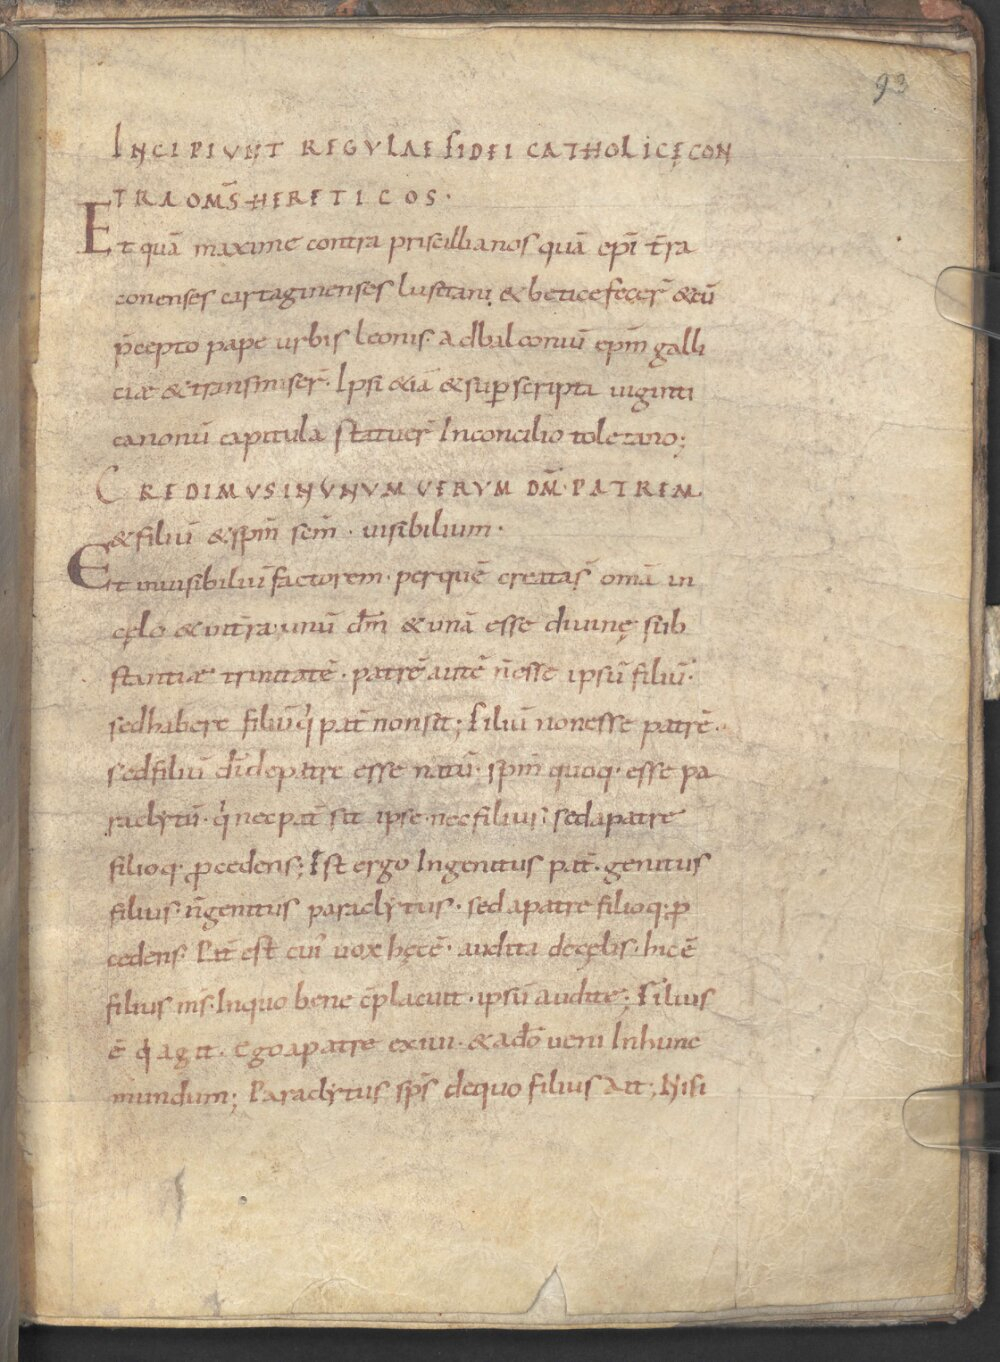 93
INCIPIUNT REGULAE FIDEI CATHOLICĘ CON
TRA OM̄S HERETICOS·
Et quā maxime contra priscillianos quā ep̄i t̄ra
conenses cartaginenses lusitani & betice fecer̄ & cū
p̄cepto pape urbis leonis· ad balconiū ep̄m galli
ciæ & transmiser̄· Ipsi & iā & sup̲ scripta uiginti
canonū capitula statuer̄ In concilio toletano;
CREDIMUS IN UNUM UERUM DM̄· PATREM
& filiū & sp̄m sc̄m· uisibilium·
Et inuisibiliū factorem· per quē creata s̄ om̄a in
cęlo & int̄ra· unū dm̄ & unā esse diuinę sub
stantiæ trinitatē· patrē autē n̄ esse ipsū filiū·
sed habere filiū q̇ pat̄ non sit; Filiū non esse patrē·
sed filiū dī de patre esse natū· sp̄m quoq· esse pa
raclytū· q̇ nec pat̄ sit ipse· nec filius· sed a patre
filioq· p̄cedens; Est ergo Ingenitus pat̄· genitus
filius· n̄ genitus paraclytus· sed a patre filioq· p̄
cedens· Pat̄ est cui' uox hęc ē· audita de cęlis· hic ē
filius ms̄· In quo bene c̄placuit· ipsū audite; Filius
ē q̇ agit· Ego a patre exiui· & a dō ueni In hunc
mundum; Paraclytus sp̄s de quo filius ait; Nisi